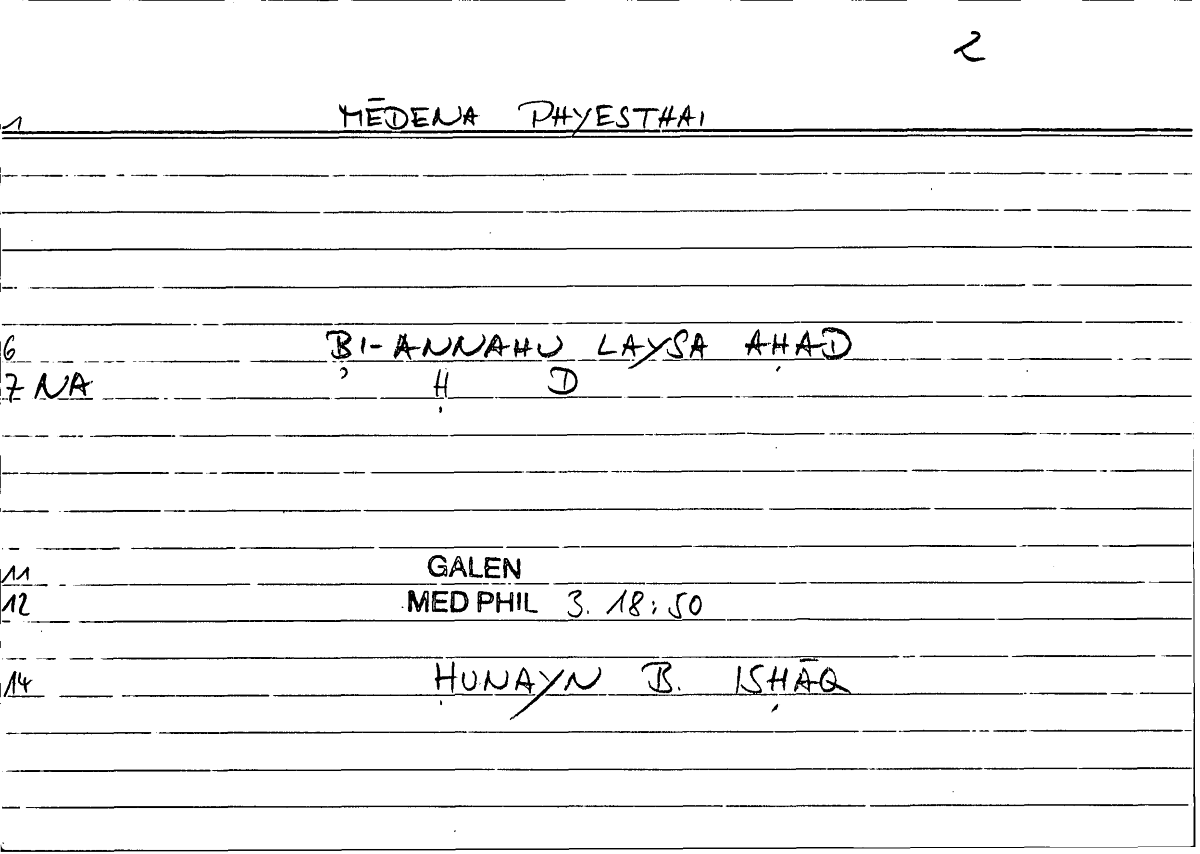 2
1 MĒDENA PHYESTHAI
6 BI-ANNAHU LAYSA AḤAD
7 NA ʾ Ḥ D
11 GALEN
12 MED PHIL 3. 18:50
14 ḤUNAYN B. ISḤĀQ